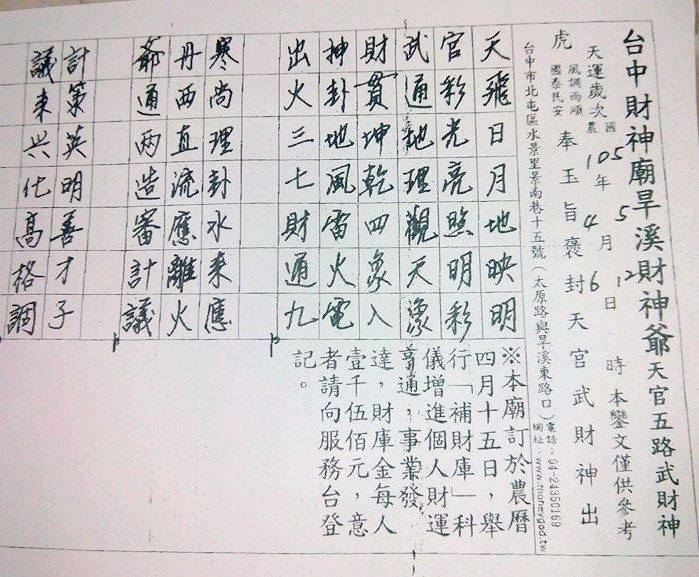 台中財神廟旱溪財神爺天官五路武財神
天運歲次國農105年4 5月6 12日 時本鑾文僅供參考
風調雨順
國泰民安
奉玉旨褒封天宮武財神出
虎
台中市北屯區水景里景南巷十五號(太原路與旱溪東路口)
電話:04-24350169
網址:www.moneygod.tw
天飛日月地映明
官彩光亮照明彩
武通地理觀天象
財貫坤乾四象入
神卦地風雷火電
出火三七財通九
寒尚理卦水來應
丹西直流應離火
爺通兩造審計議
計策英明善才子
議來興化高格調
※本廟訂於農曆
四月十五日,舉
行「補財庫」科
儀增進個人財運
亨通,事業發
達,財庫金每人
壹千伍佰元,意
者請向服務台登
記。